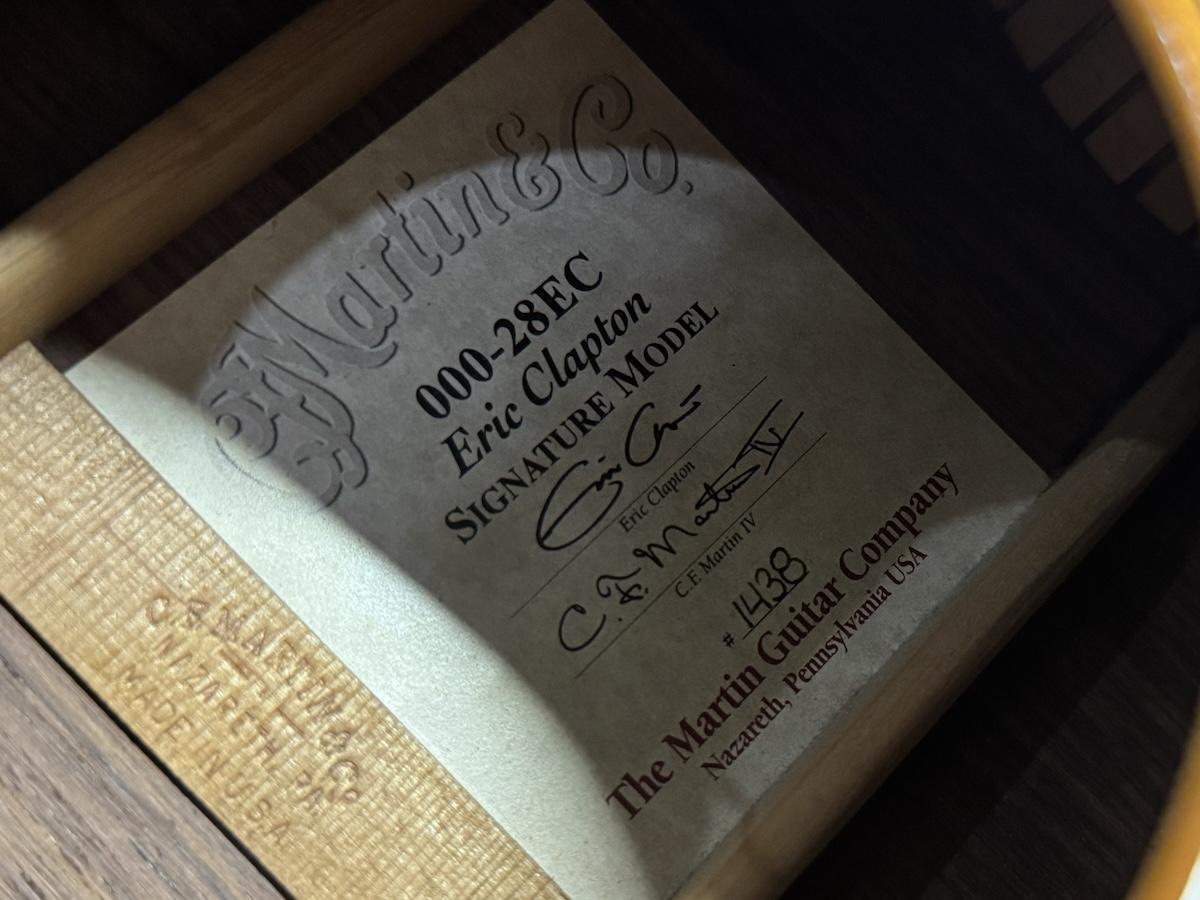 CF Martin & Co.
000-28EC
Eric Clapton
SIGNATURE MODEL
Eric Clapton
Eric Clapton
C. F. Martin IV
C.F. Martin IV
# 1438
The Martin Guitar Company
Nazareth, Pennsylvania USA
C.F. MARTIN & Co
NAZARETH, PA
MADE IN U.S.A